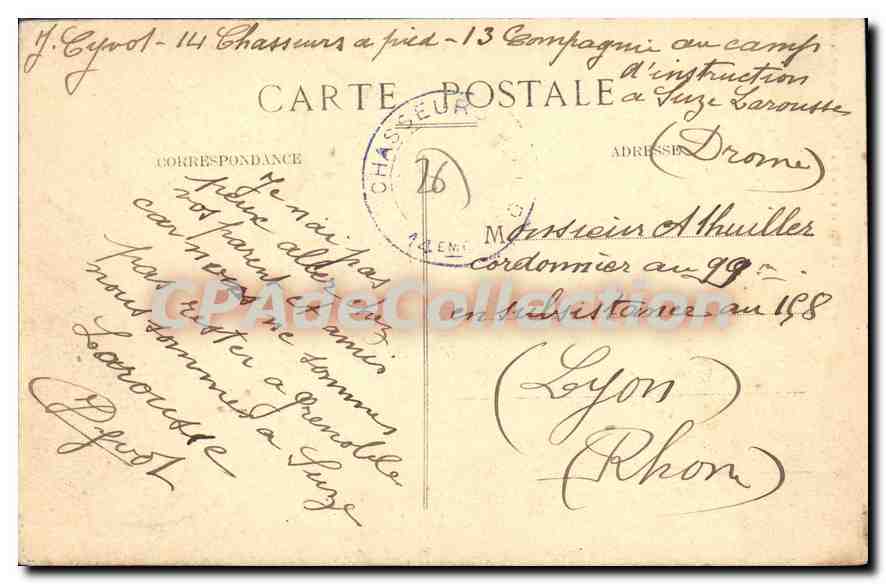 J. Cyvot - 14 Chasseurs a pied - 13 Compagnie au camp
d'instruction
a Suze Larousse
(Drome)
CARTE POSTALE
CHASSEURS
14EME
26
CORRESPONDANCE
ADRESSE
Je n'ai pas
peux aller chez
vos parent et amis
car nous ne sommes
pas rester a grenoble
nous sommes a Suze
Larousse
JCyvot
Monsieur Athuiller
cordonnier au 99
en subsistance au 158
(Lyon)
(Rhone)
CPAdeCollection